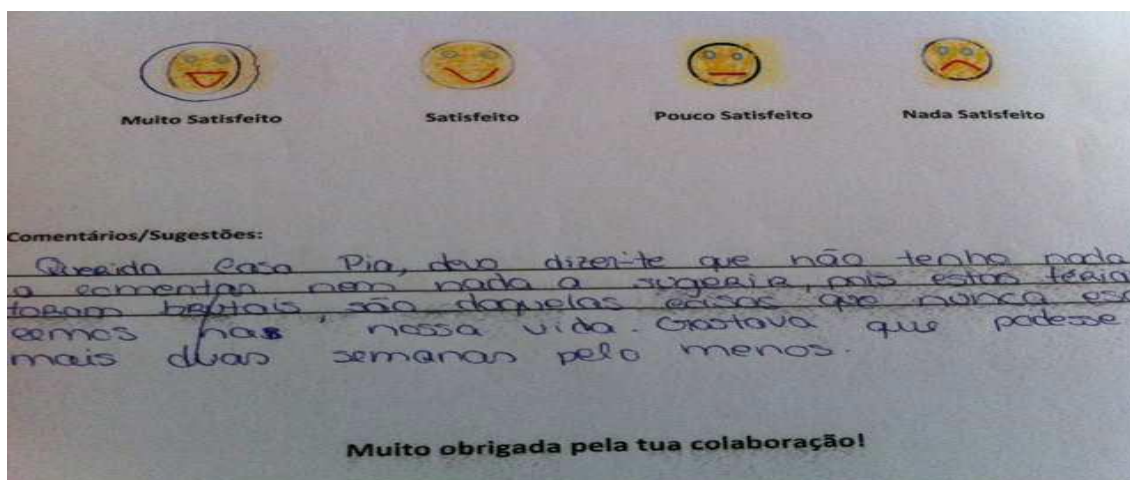 Muito Satisfeito Satisfeito Pouco Satisfeito Nada Satisfeito
Comentários/Sugestões:
Querida Casa Pia, devo dizer-te que não tenho nada
a comentar nem nada a sugerir, pois estas féria
foram brutais, são daquelas coisas que nunca esq
cemos na nossa vida. Gostava que podesse
mais duas semanas pelo menos.
Muito obrigada pela tua colaboração!